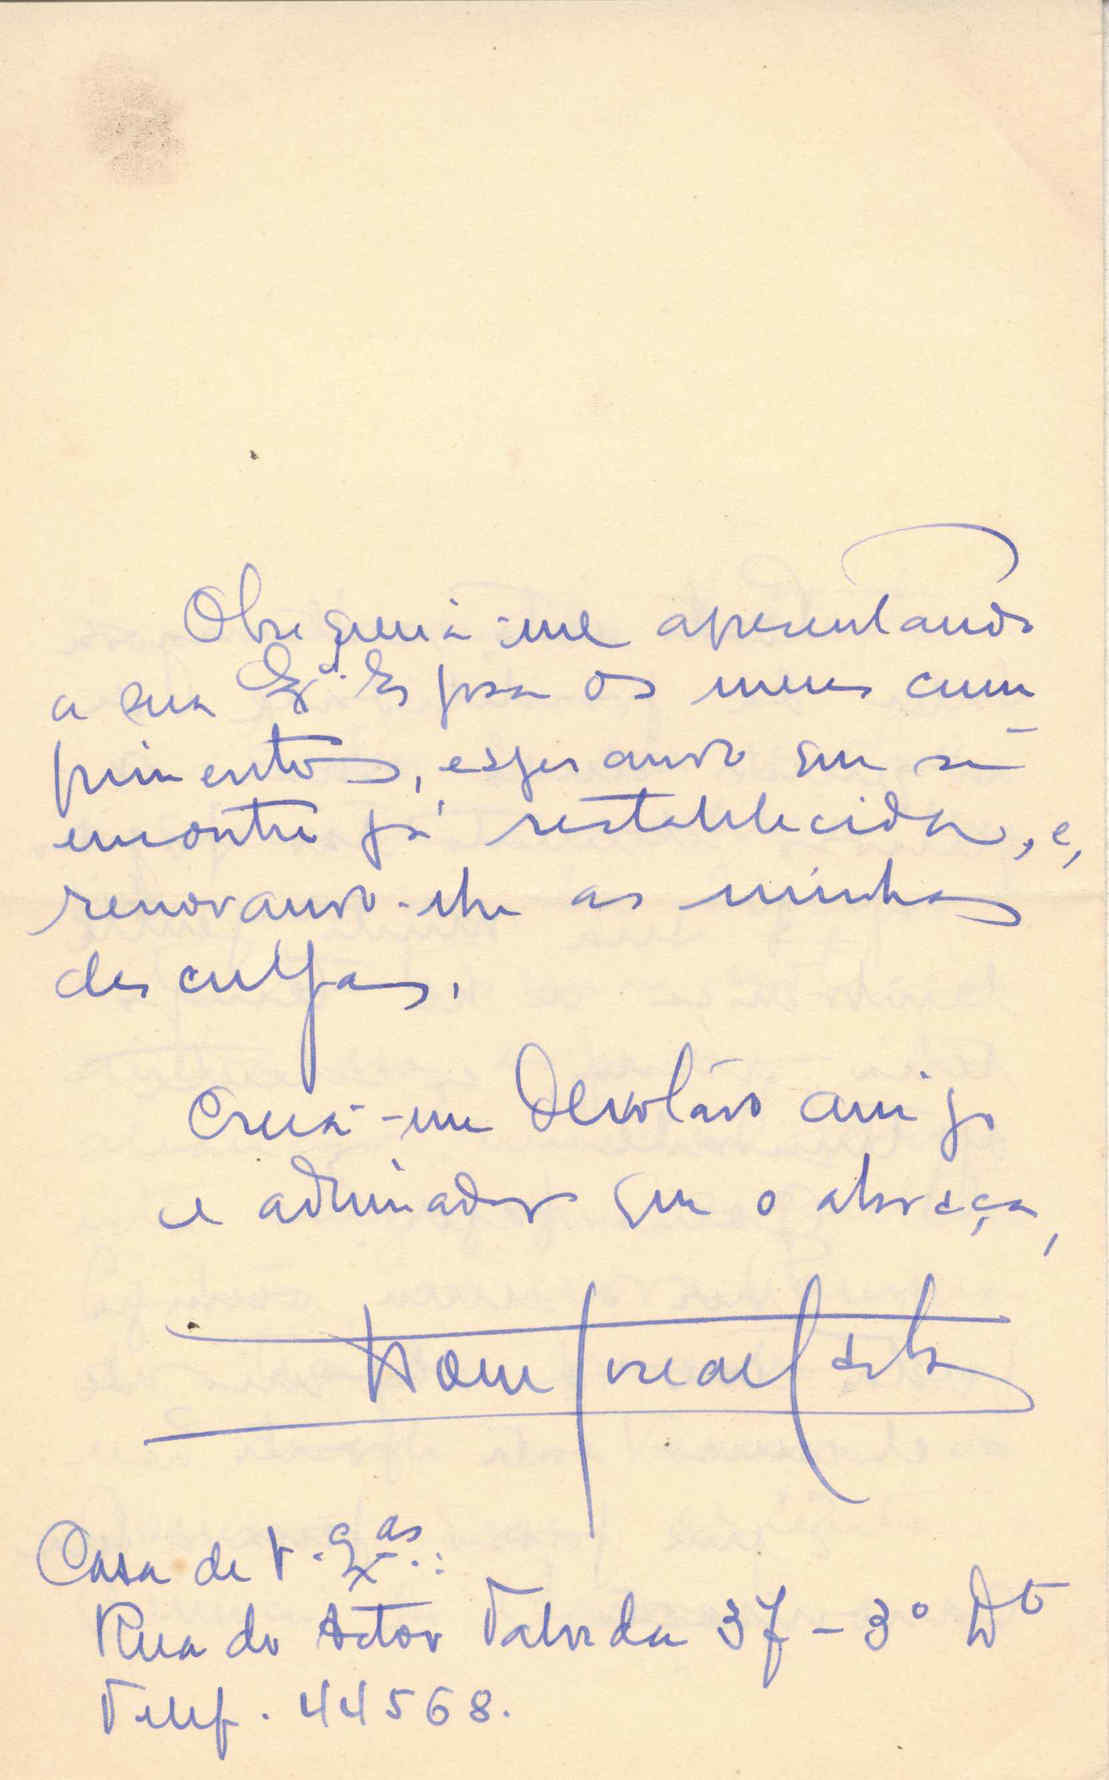 Obsequeia-me apresentando
a sua Exª. Esposa os meus cum
primentos, esperando que se
encontre já restabelecida, e,
renovando-lhe as minhas
desculpas.
Creia-me Devotado amigo
e admirador que o abraça,
Casa de V. Exas.:
Rua do Actor Taborda 37-3º Dto
Telef. 44568.